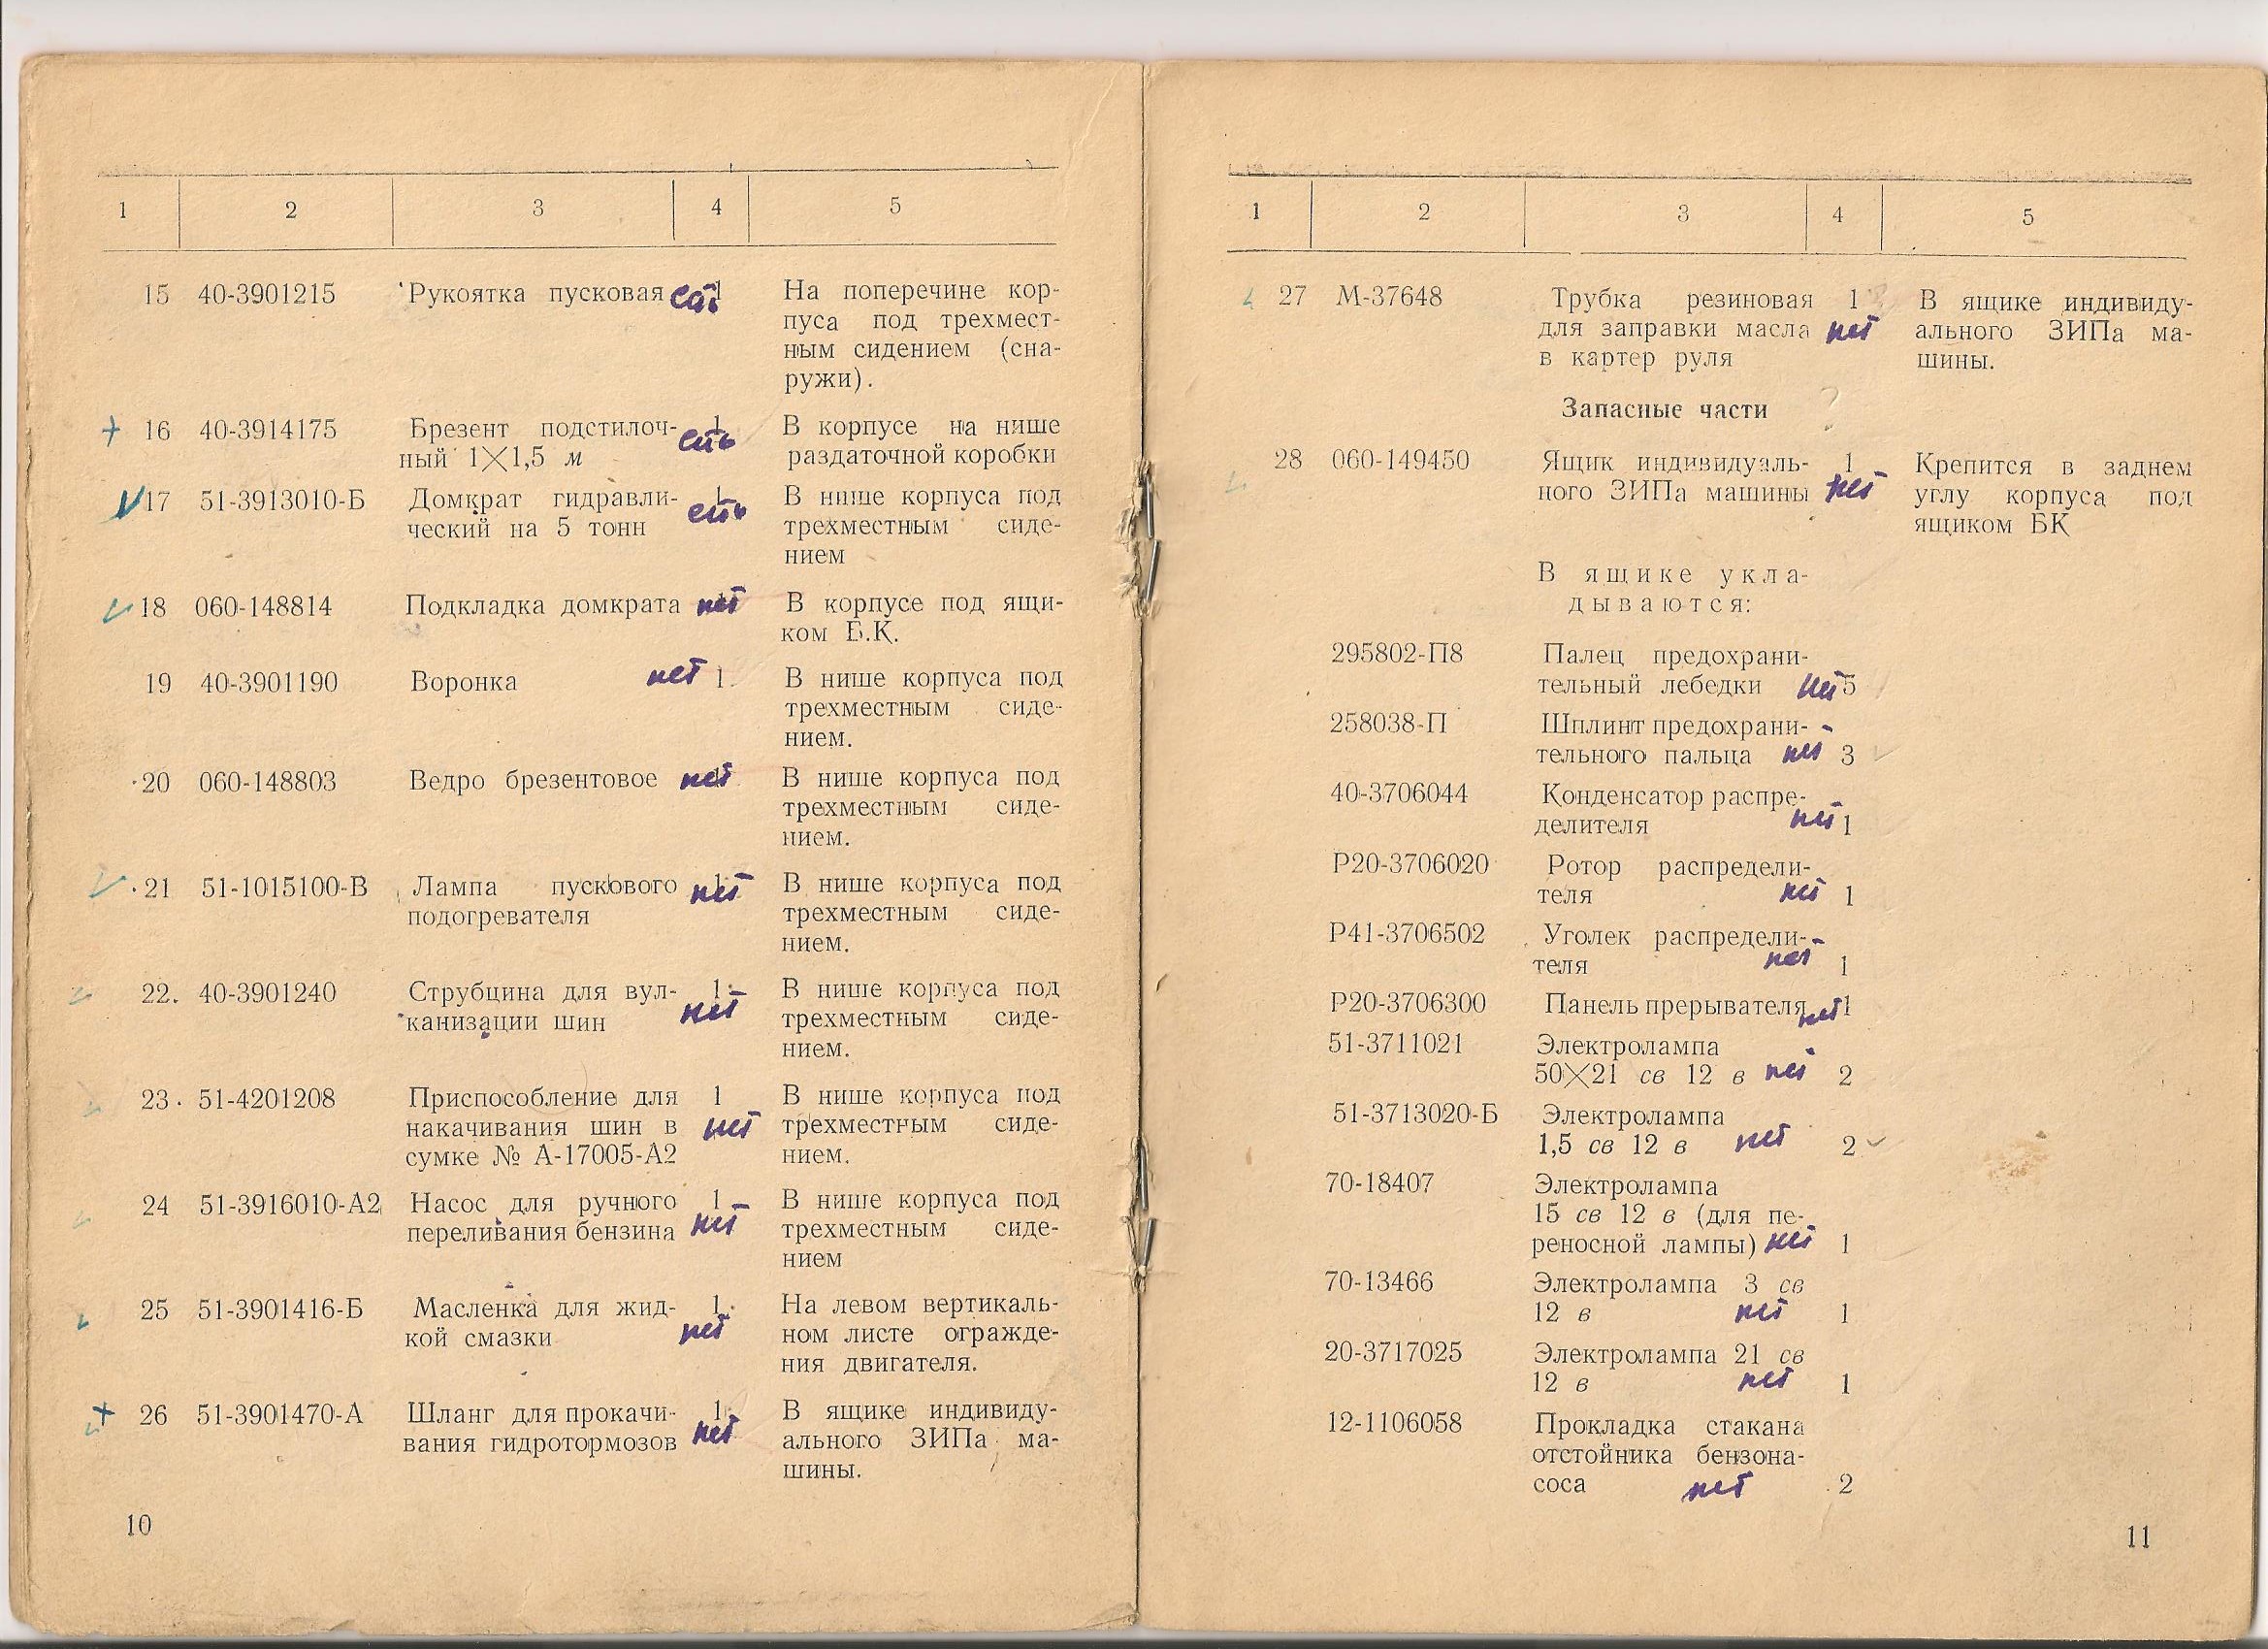 1 2 3 4 5
15 40-3901215 Рукоятка пусковая есть 1 На поперечине кор-
пуса под трехмест-
ным сидением (сна-
ружи).
16 40-3914175 Брезент подстилоч- 1 В корпусе на нише
ный 1×1,5 м есть раздаточной коробки
17 51-3913010-Б Домкрат гидравли- 1 В нише корпуса под
ческий на 5 тонн есть трехместным сиде-
нием
18 060-148814 Подкладка домкрата нет В корпусе под ящи-
ком Б.К.
19 40-3901190 Воронка нет 1 В нише корпуса под
трехместным сиде-
нием.
20 060-148803 Ведро брезентовое нет В нише корпуса под
трехместным сиде-
нием.
21 51-1015100-В Лампа пускового нет В нише корпуса под
подогревателя трехместным сиде-
нием.
22. 40-3901240 Струбцина для вул- 1 В нише корпуса под
канизации шин нет трехместным сиде-
нием.
23 51-4201208 Приспособление для 1 В нише корпуса под
накачивания шин в нет трехместным сиде-
сумке № А-17005-А2 нием.
24 51-3916010-А2 Насос для ручного 1 В нише корпуса под
переливания бензина нет трехместным сиде-
нием
25 51-3901416-Б Масленка для жид- 1 На левом вертикаль-
кой смазки нет ном листе огражде-
ния двигателя.
26 51-3901470-А Шланг для прокачи- 1 В ящике индивиду-
вания гидротормозов нет ального ЗИПа ма-
шины.
10
1 2 3 4 5
27 М-37648 Трубка резиновая 1 В ящике индивиду-
для заправки масла нет ального ЗИПа ма-
в картер руля шины.
Запасные части ?
28 060-149450 Ящик индивидуаль- 1 Крепится в заднем
ного ЗИПа машины нет углу корпуса под
ящиком БК
В ящике укла-
дываются:
295802-П8 Палец предохрани-
тельный лебедки нет 5
258038-П Шплинт предохрани-
тельного пальца нет 3
40-3706044 Конденсатор распре-
делителя нет 1
Р20-3706020 Ротор распредели-
теля нет 1
Р41-3706502 Уголек распредели-
теля нет 1
Р20-3706300 Панель прерывателя нет 1
51-3711021 Электролампа
50×21 св 12 в нет 2
51-3713020-Б Электролампа
1,5 св 12 в нет 2
70-18407 Электролампа
15 св 12 в (для пе-
реносной лампы) нет 1
70-13466 Электролампа 3 св
12 в нет 1
20-3717025 Электролампа 21 св
12 в нет 1
12-1106058 Прокладка стакана
отстойника бензона-
соса нет 2
11